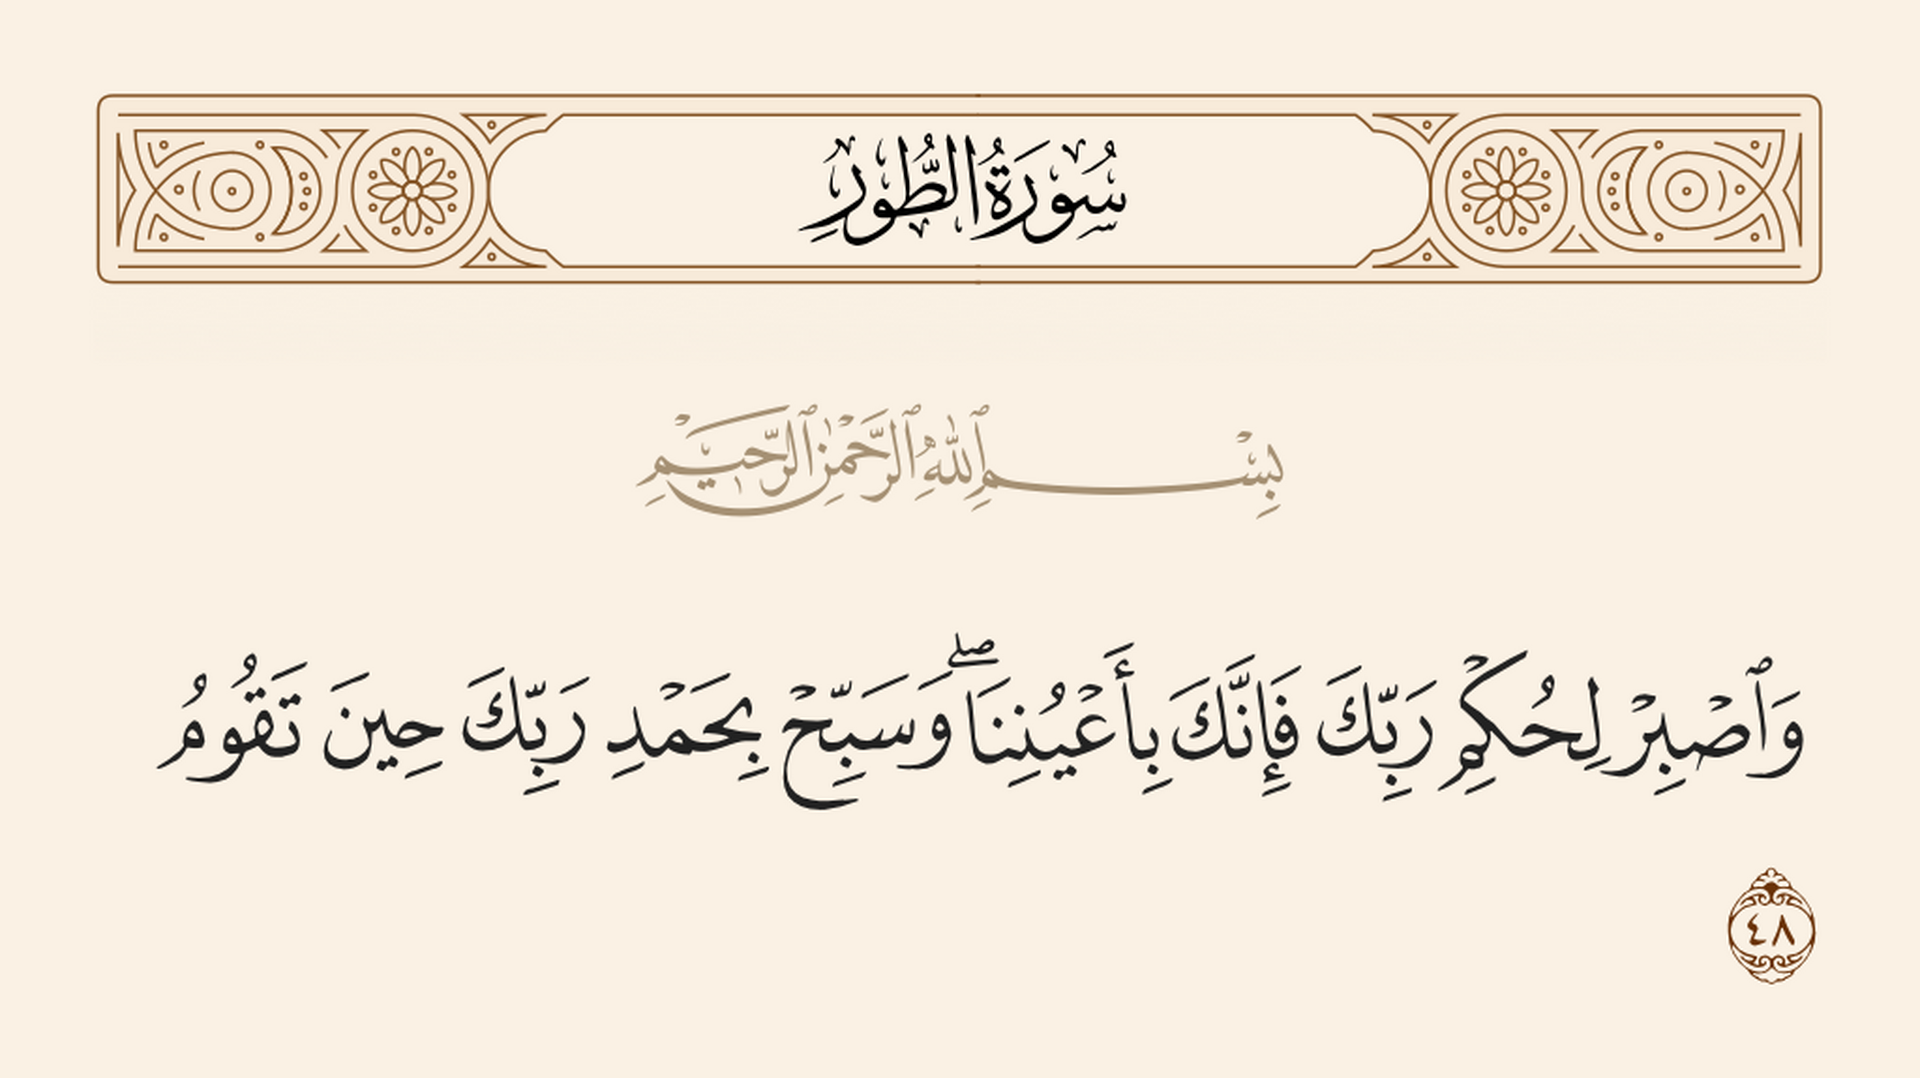 سُورَةُ الطُّورِ
بِسْمِ ٱللَّهِ ٱلرَّحْمَٰنِ ٱلرَّحِيمِ
وَٱصْبِرْ لِحُكْمِ رَبِّكَ فَإِنَّكَ بِأَعْيُنِنَا ۖ وَسَبِّحْ بِحَمْدِ رَبِّكَ حِينَ تَقُومُ
٤٨